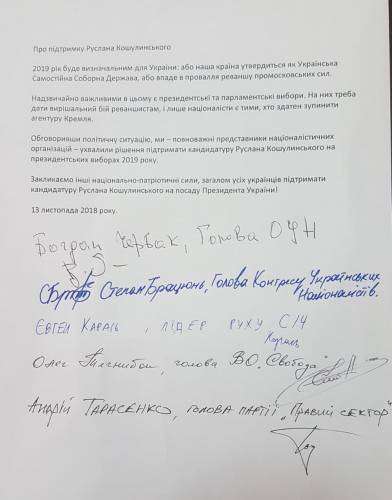 Про підтримку Руслана Кошулинського
2019 рік буде визначальним для України: або наша країна утвердиться як Українська
Самостійна Соборна Держава, або впаде в провалля реваншу промосковських сил.
Надзвичайно важливими в цьому є президентські та парламентські вибори. На них треба
дати вирішальний бій реваншистам, і лише націоналісти є тими, хто здатен зупинити
агентуру Кремля.
Обговоривши політичну ситуацію, ми – повноважні представники націоналістичних
організацій – ухвалили рішення підтримати кандидатуру Руслана Кошулинського на
президентських виборах 2019 року.
Закликаємо інші національно-патріотичні сили, загалом усіх українців підтримати
кандидатуру Руслана Кошулинського на посаду Президента України!
13 листопада 2018 року.
Богдан Червак, Голова ОУН
Степан Брацюнь, Голова Конгресу Українських
Націоналістів.
Євген Карась, лідер руху С14
Олег Тягнибок, голова ВО „Свобода"
Андрій Тарасенко, голова партії „Правий сектор"